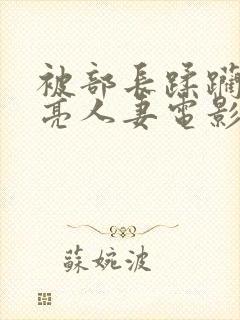 被部長蹂躪
亮人妻電影
蘇婉波